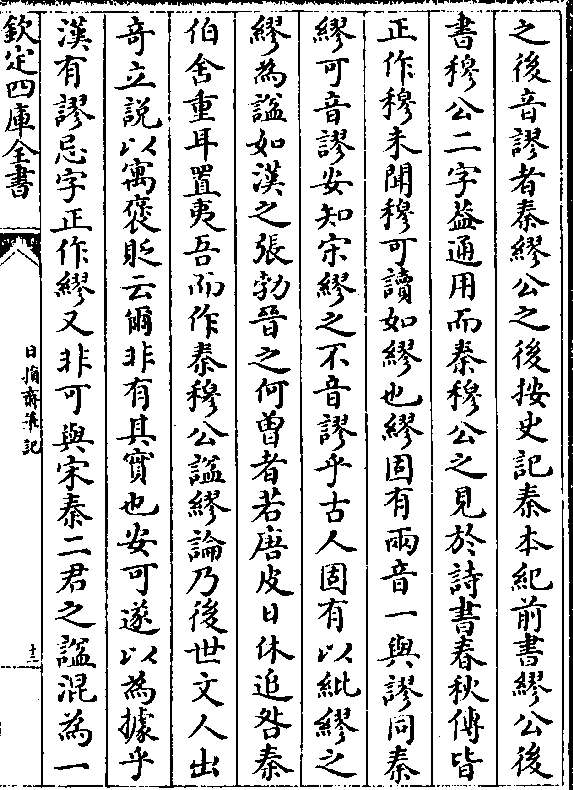 之後音謬者秦繆公之後按史記秦本紀前書繆公後
書穆公二字益通用而秦穆公之見於詩書春秋傳皆
正作穆未聞穆可讀如繆也繆固有兩音一與謬同秦
繆可音謬安知宋繆之不音謬乎古人固有以紕繆之
繆為諡如漢之張勃晉之何曾者若唐皮日休追咎秦
伯舍重耳置夷吾而作秦穆公諡繆論乃後世文人出
奇立說以寓褒貶云爾非有其實也安可遂以為據乎
漢有謬忌字正作繆又非可與宋秦二君之諡混為一
欽定四庫全書
日損齋筆記
十二